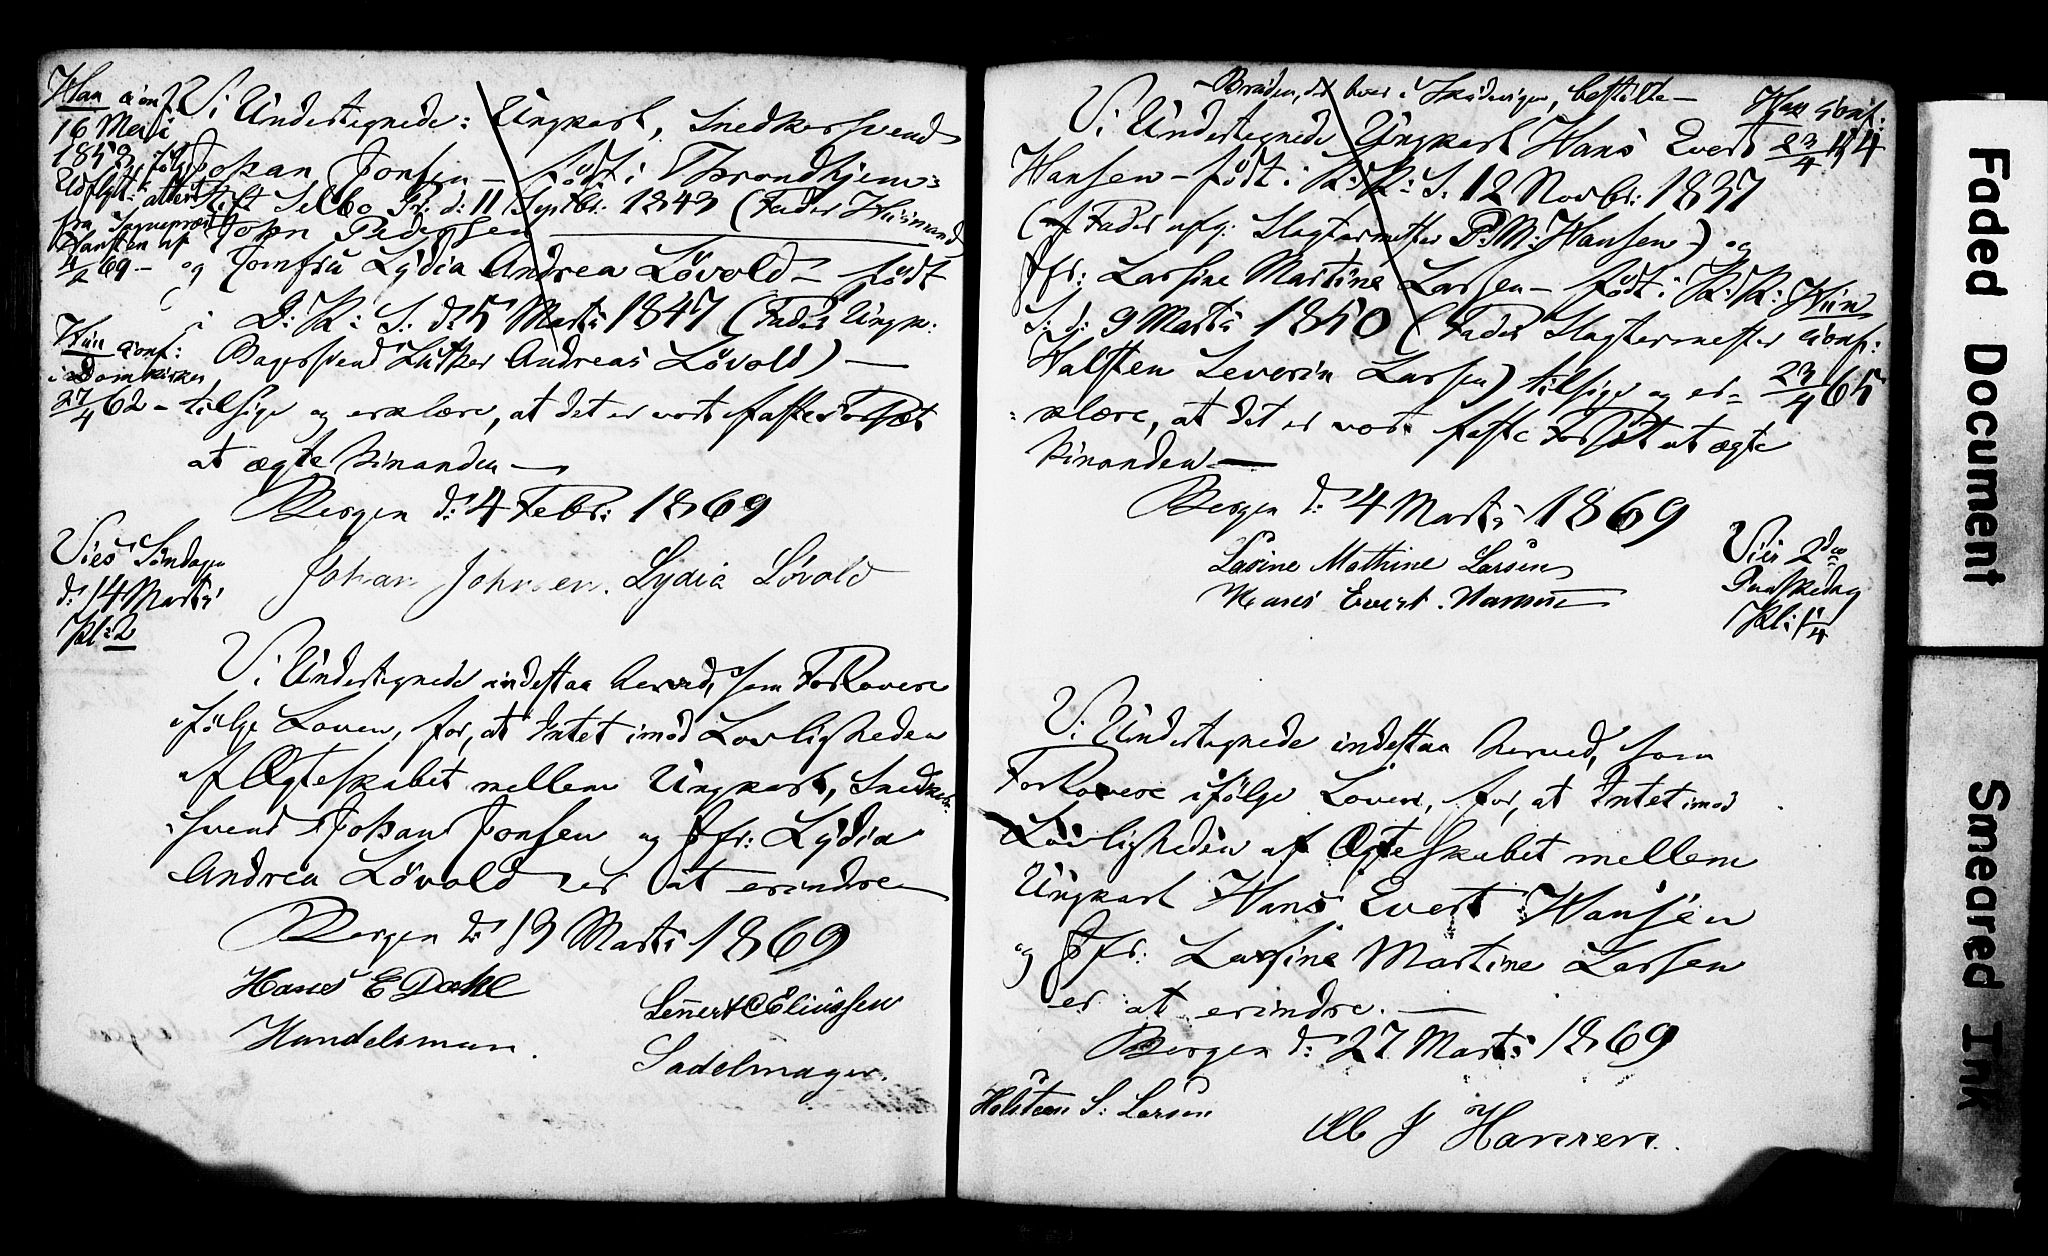 Han conf.
16 Mai
1858, ifölge
Udflytt: attest
fra Sognepræst
Hansteen af
4/2 69 –
Vi Undertegnede: Ungkarl, Snedkersvend
Johan Jonsen – født i Throndhjems
Stift Selbo Pr. d: 11 Septbr: 1843 (Fader Huusmand
John Pedersen
og Jomfru Lydia Andrea Lövold – født
i D: K: S: d: 5 Marts 1847 (Fader Ungk:
Bagersvend Lüther Andreas Lövold) –
tilsige og erklære, at det er vort faste Forsæt
at ægte hinanden –
Hun conf:
i Domkirken
27/4 62 –
Bergen d: 4 Febr: 1869
Johan Johnsen. Lydia Lövold
Vies Søndagen
d: 14 Marts
Kl: 2
Vi Undertegnede indestaa herved, som Forlovere
ifölge Loven, for, at Intet imod Lovligheden
af Ægteskabet mellem Ungkarl, Snedker-
svend Johan Jonsen og Jfr: Lydia
Andrea Lövold er at erindre
Bergen d: 13 Marts 1869
Hans E Dahl
Handelsman.
Lennert C Eliussen
Sadelmager.
– Bruden, der boer i Skudevigen, bestilte –
Vi Undertegnede Ungkarl Hans Evert
Hansen – født i K: K: S. 12 Novbr: 1837
(Fader afg: Slagtermester P. M: Hansen –) og
Jfr: Larsine Martine Larsen – født i K: K:
S: d: 9 Marts 1850 (Fader Slagtermester
Halsten Severin Larsen) tilsige og er-
klære, at det er vort faste Forsæt at ægte
hinanden –
Han conf:
23/4 54
Hun
conf:
23/4 65
Bergen d: 4 Marts 1869
Lasine Mathine Larsen
Hans Evert. Hansen
Vies 2den
Paaskedag
Kl: 1 1/4
Vi Undertegnede indestaa herved, som
Forlovere ifölge Loven, for, at Intet imod
Lovligheden af Ægteskabet mellem
Ungkarl Hans Evert Hansen
og Jfr: Larsine Martine Larsen
er at erindre. –
Bergen d: 27 Marts 1869
Holsteen S: Larsen
Ole J Hansen.
Faded Document
Smeared Ink